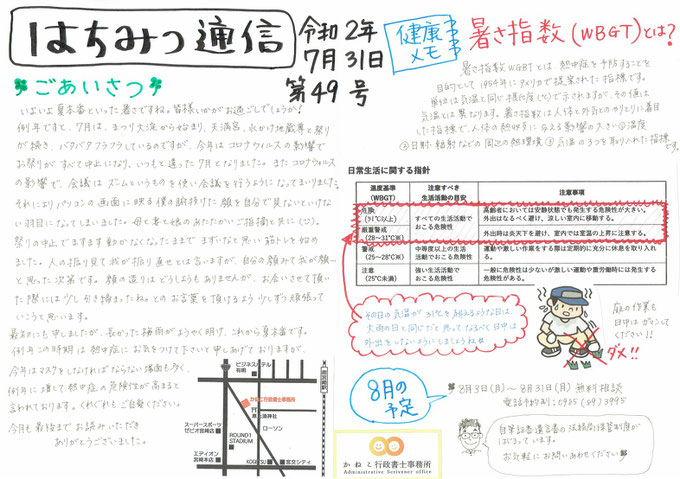 はちみつ通信
令和2年
7月31日
第49号
ごあいさつ
いよいよ夏本番といった暑さですね。皆様いかがお過ごしでしょうか?
例年ですと、7月は、まつり大淀から始まり、天満宮、水かけ地蔵尊と祭り
が続き、バタバタフラフラしているのですが、今年はコロナウィルスの影響で
お祭りがすべて中止になり、いつもと違った7月となりました。またコロナウィルス
の影響で、会議はズームというものを使い会議を行うようになってまいりました。
それによりパソコンの画面に映る僕の
顔を自分で見ないといけな
い羽目になってしまいました。
祭りの中止でますます動かなくなったままで まずいなと思い 筋トレを始め
ました。人の振り見て我が振り直せとは言いますが、自分の顔みて我が顔
と思った次第です。顔の造りはどうしようもありませんが、お会いさせて頂い
た際には少し引き締まったね。とのお言葉を頂けるよう少しずつ頑張って
いこうと思います。
最初にも申しましたが、長かった梅雨がようやく明け、これから夏本番です。
例年この時期は熱中症にお気をつけて下さいと申しあげておりますが、
今年はマスクをしなければならない場面も多く、
例年に増して熱中症の危険性が高まると
言われております。くれぐれもご自愛ください。
今月も最後までお読みいただき
ありがとうございました。
ビジネスホテル
有明
南宮崎駅
かねこ行政書士事務所
恵比須神社
ローソン
スーパースポーツ
ゼビオ宮崎店
ROUND1
STADIUM
エディオン
宮崎本店
宮交シティ
健康
メモ
暑さ指数(WBGT)とは?
暑さ指数WBGTとは 熱中症を予防することを
目的として1954年にアメリカで提案された指標です。
単位は気温と同じ摂氏度(℃)で示されますが、その値は
気温とは異なります。暑さ指数は人体と外気との熱のやりとりに着目
した指標で、人体の熱収支に与える影響の大きい①湿度
②日射・輻射などの周辺の熱環境 ③気温の3つを取り入れた指標
です。
日常生活に関する指針
温度基準
(WBGT)
注意すべき
生活活動の目安
注意事項
危険
(31℃以上)
すべての生活活動で
おこる危険性
高齢者においては安静状態でも発生する危険性が大きい。
外出はなるべく避け、涼しい室内に移動する。
厳重警戒
(28~31℃※)
外出時は炎天下を避け、室内では室温の上昇に注意する。
警戒
(25~28℃※)
中等度以上の生活
活動でおこる危険性
運動や激しい作業をする際は定期的に充分に休息を取り入れ
る。
注意
(25℃未満)
強い生活活動で
おこる危険性
一般に危険性は少ないが激しい運動や重労働時には発生する
危険性がある。
その日の気温が31℃を超えるような日は、
大雨の日と同じだと思ってなるべく日中は
外出をしないようにしましょうね
庭の作業も
日中はガマンして
ください!!
ダメ!!
8月の
予定
8月3日(月)~8月31日(月)無料相談
自筆証書遺言書の法務局保管制度が
はじまっています。
お気軽にお問いあわせください
かねこ行政書士事務所
Administrative Scrivener office